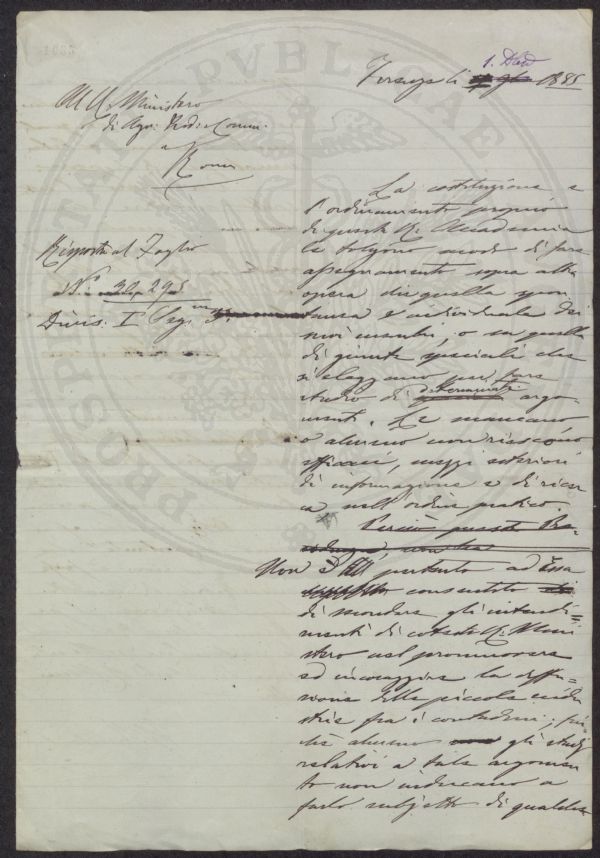 1. Dec
Firenze li 1885
Al R. Ministero
di Agr. Ind. e Comm.
a
Roma
Risposta al Foglio
N.o 30,295
Divis. I Sez.
La costituzione e
l'ordinamento proprio
di questa R. Accademia
le tolgono modo di fare
assegnamento sopra altra
opera che quella spon
tanea e individuale dei
suoi membri, o su quella
di giunte speciali che
si eleggano per fare
studio di determinati argo-
menti. Le mancano
o almeno non riescono
efficaci, mezzi esteriori
di informazione e di ricer
ca nell'ordine pratico.
Non È pertanto ad Essa
consentito
di secondare gli intendi=
menti di cotesto R. Mini
stero nel promuovere
ed incoraggiare la diffu=
sione delle piccole indu
strie fra i contadini; fin
chè almeno gli studj
relativi a tale argomen
to non inducano a
farlo subjetto di qualche
PVBLICAE